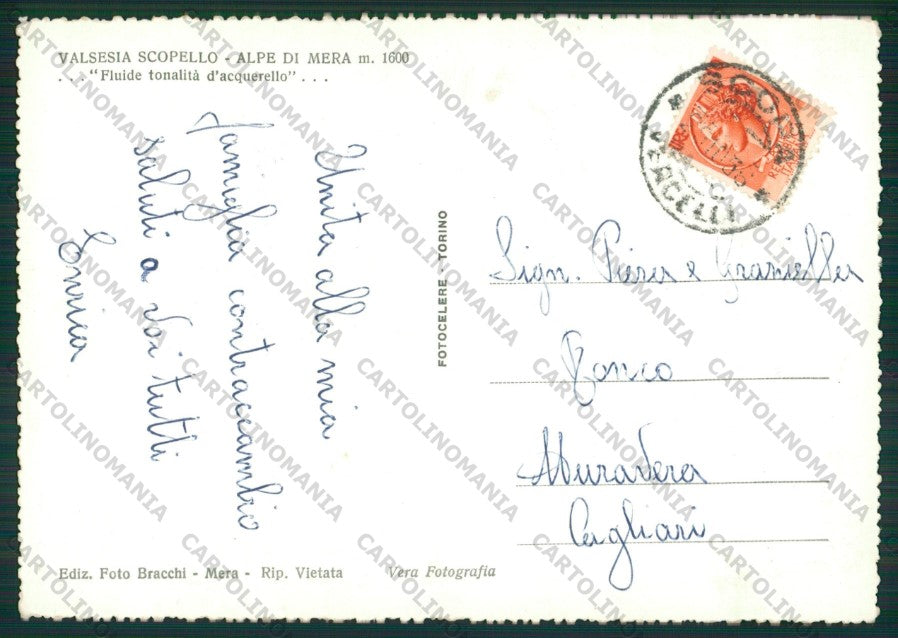 VALSESIA SCOPELLO - ALPE DI MERA m. 1600
. . . "Fluide tonalità d'acquerello" . . .
Unita alla mia
famiglia contraccambio
saluti a voi tutti
Enrica
FOTOCELERE - TORINO
SCOPA
VERCELLI
Sign. Piera e Graziella
Muravera
Cagliari
Ediz. Foto Bracchi - Mera - Rip. Vietata
Vera Fotografia
CARTOLINOMANIA